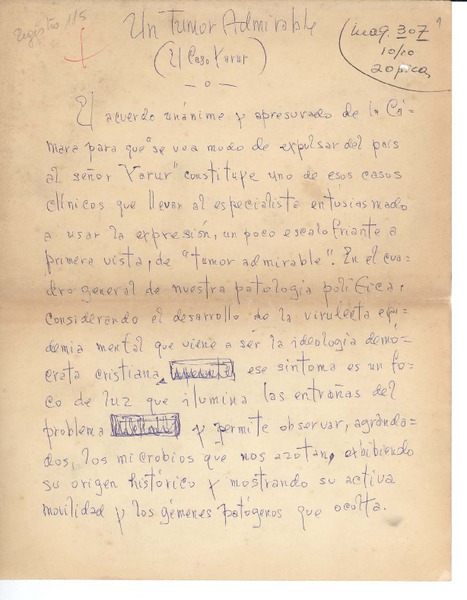 Registro 115
Un Tumor Admirable
1
(El Caso Yarur)
imag. 307
10/10
20 picas
— o —
El acuerdo unánime y apresurado de la Cá-
mara para que "se vea modo de expulsar del país
al señor Yarur" constituye uno de esos casos
clínicos que llevan al especialista entusiasmado
a usar la expresión, un poco escalofriante a
primera vista, de "tumor admirable". En el cua-
dro general de nuestra patología política,
considerando el desarrollo de la virulenta epi-
demia mental que viene a ser la ideología demó-
crata cristiana, ese síntoma es un fo-
co de luz que ilumina las entrañas del
problema y permite observar, agranda-
dos, los microbios que nos azotan, exhibiendo
su origen histórico y mostrando su activa
movilidad y los gérmenes patógenos que oculta.